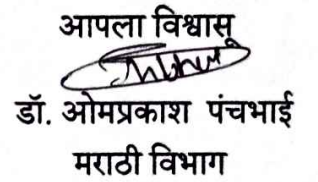 आपला विश्वासू
डॉ. ओमप्रकाश पंचभाई
मराठी विभाग